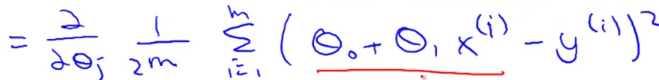 = ∂/∂θⱼ 1/2m Σᵢ₌₁ᵐ (θ₀ + θ₁ x⁽ⁱ⁾ - y⁽ⁱ⁾)²